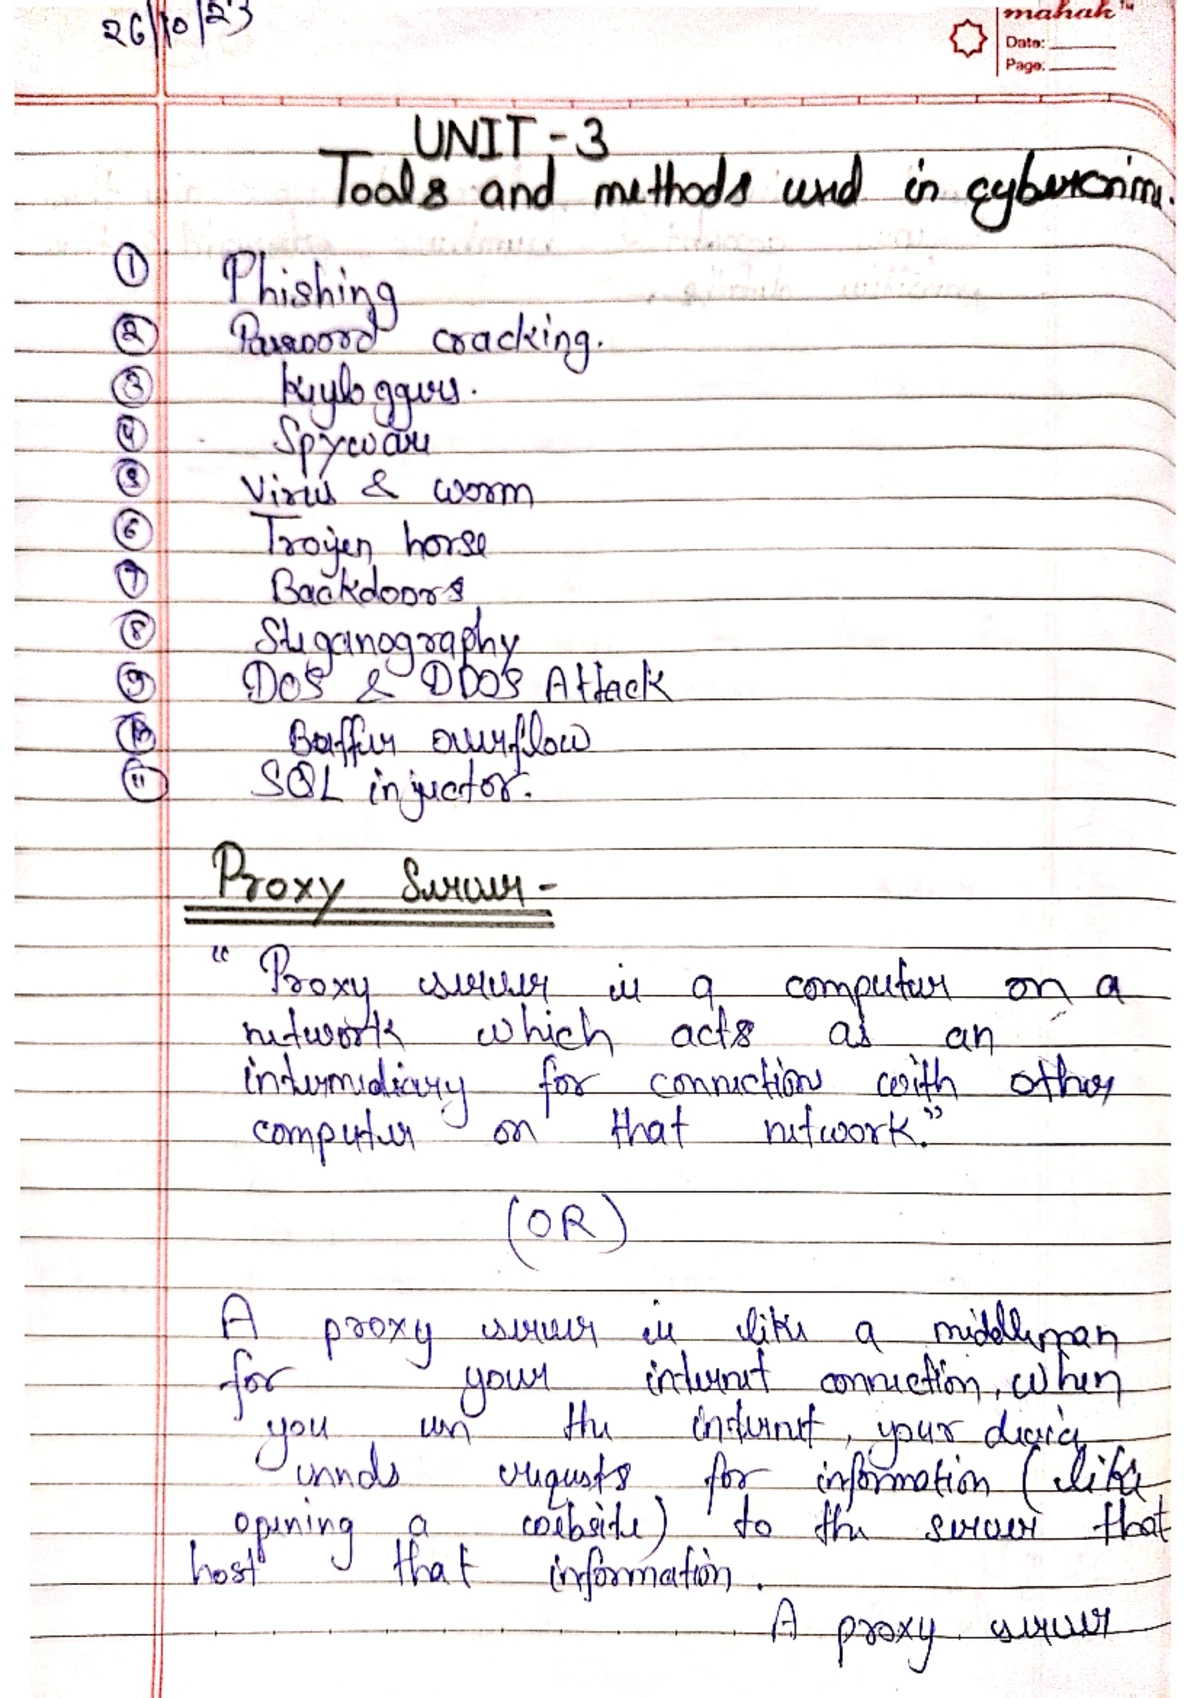 26/10/23
mahak
Date:
Page:
UNIT - 3
Tools and methods used in cybercrime.
① Phishing
② Password cracking.
③ Keyloggers.
④ Spyware
⑤ Virus & worm
⑥ Trojen horse
⑦ Backdoors
⑧ Steganography
⑨ DOS & DDOS Attack
⑩ Buffer overflow
⑪ SQL injector.
Proxy Server -
" Proxy server is a computer on a
network which acts as an
intermediary for connection with other
computer on that network."
(OR)
A proxy server is like a middleman
for your internet connection, when
you use the internet, your device
sends requests for information (like
opening a website) to the server that
host that information.
A proxy server